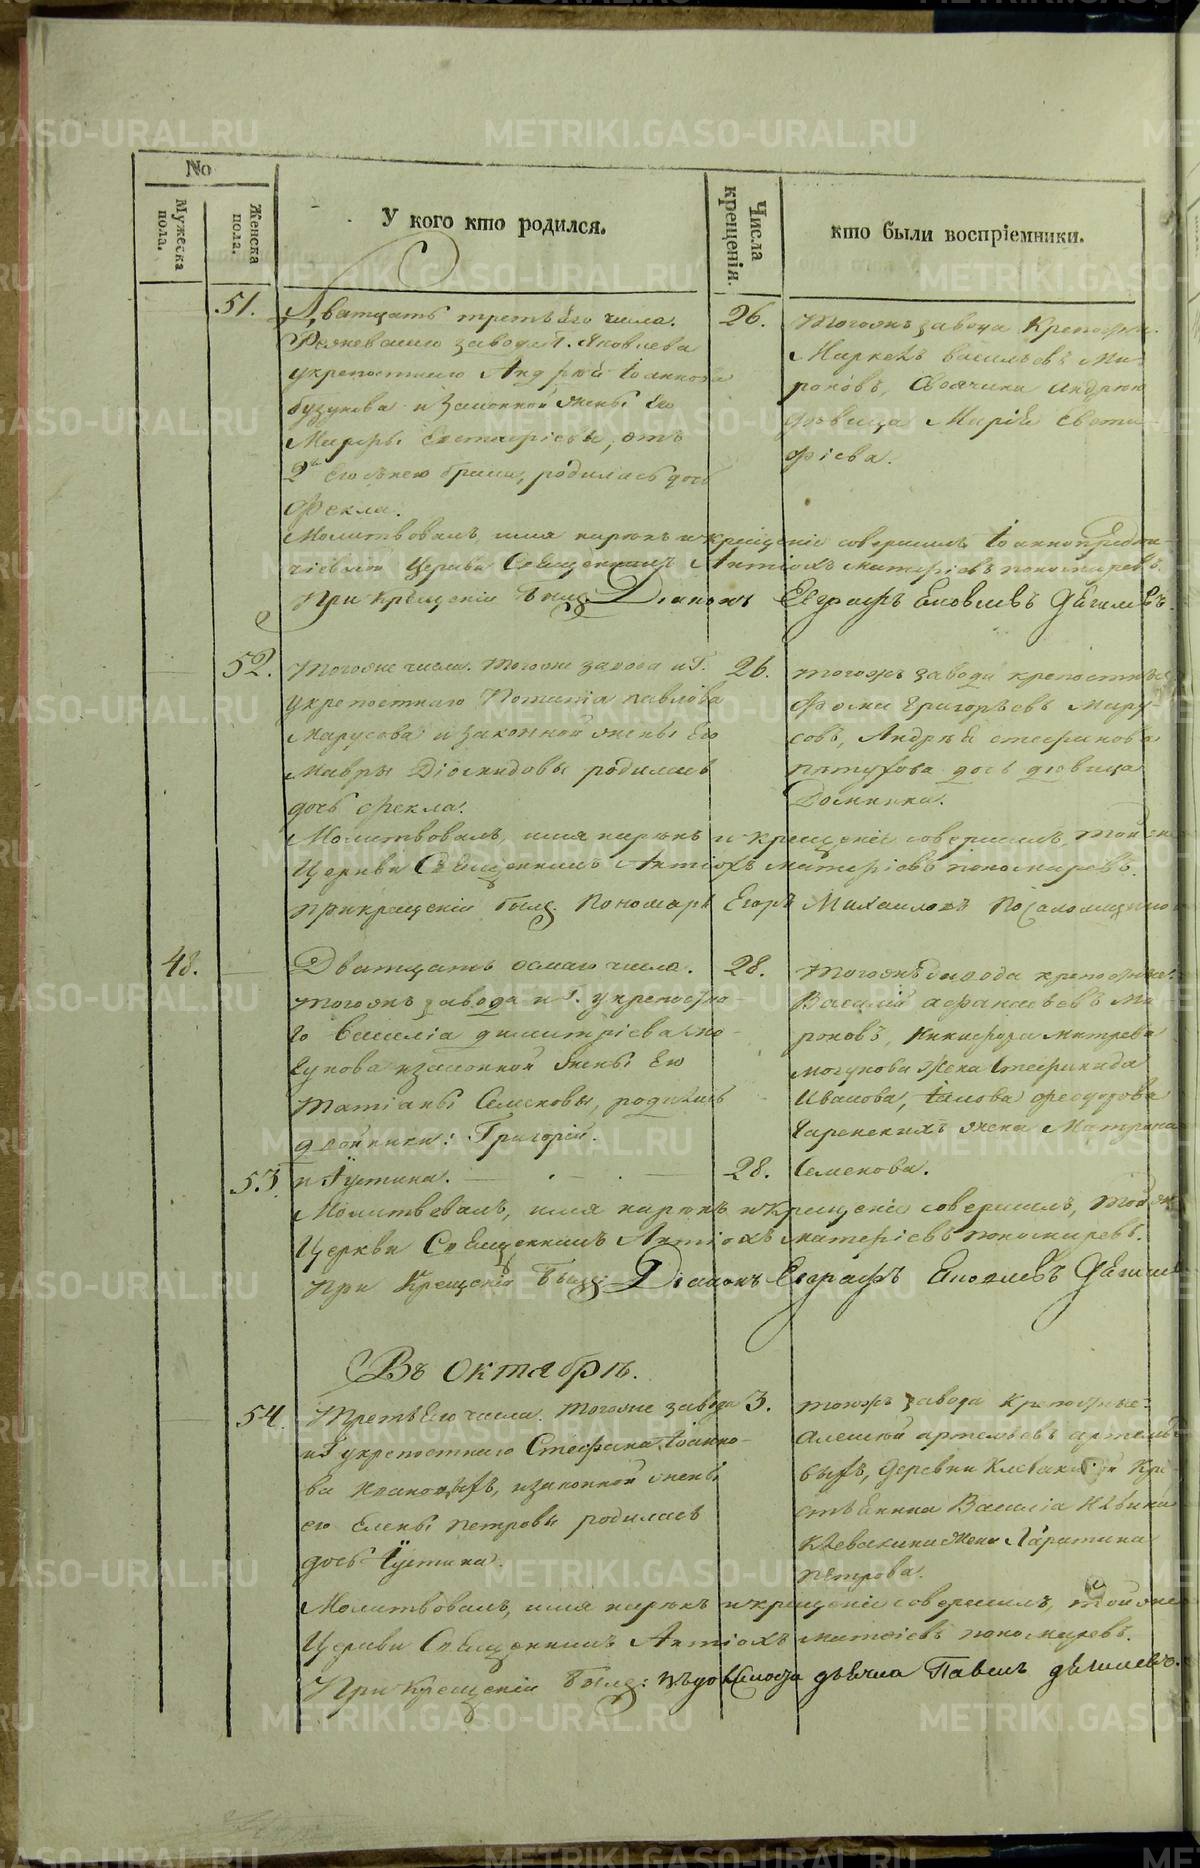 No
Мужеска пола.
Женска пола.
У кого кто родился.
Числа крещенія.
кто были воспріемники.
51.
Дватцать третьяго числа.
завода Г. Яковлева
укрепостнаго Андрѣя Іоаннова
бузунова и законной жены Его
Марфы Евстафіевы, отъ
2го брака, родилась дочь
Фекла.
26.
Тогожъ завода Крепостн.
Маркелъ васильевъ Ми-
роновъ, Андрѣя
дѣвица Марія Евста-
фіева.
Молитвовалъ, имя нарекъ и крещеніе совершилъ Іоаннопредте-
чіевской Церкви Священникъ Антіохъ матфіевъ пономаревъ.
При Крещеніи былъ Діаконъ Евграфъ Яковлевъ Дягилевъ.
52.
Тогоже числа. Тогоже завода и Г.
укрепостнаго Потапія павлова
Марусова и законной жены Его
Мавры Діомидовы родилась
дочь Фекла.
26.
Тогожъ завода крепостные
Фома Григорьевъ Мару-
совъ, Андрѣя стефанова
пятухова дочь дѣвица
Домника.
Молитвовалъ, имя нарекъ и крещеніе совершилъ, той же
Церкви Священникъ Антіохъ матфіевъ пономаревъ.
При крещеніи былъ Пономарь Егоръ Михаиловъ
48.
Дватцать осмаго числа.
Тогожъ завода и Г. укрепостна-
го Василія димитріева мо-
гунова и законной жены Его
Татіаны Семеновы, родились
двойники: Григорій.
28.
Тогожъ завода крепостные:
Василій афанасьевъ Ми-
роновъ, Никифора митрева
могунова Жена Стефанида
Иванова, Іякова феодорова
Жена Матрона
53.
и Іустина.
28.
Семенова.
Молитвовалъ, имя нарекъ и Крещеніе совершилъ, Той же
Церкви Священникъ Антіохъ матфіевъ пономаревъ.
При Крещеніи былъ: Діаконъ Евграфъ Яковлевъ Дягилев
Въ Октябрѣ.
54.
Третьяго числа. Тогоже завода
и Г укрепостнаго Стефана Іоанно-
ва и законной жены
его Елены Петровы родилась
дочь Іустина.
3.
тогожъ завода Крепостные:
Алексѣй артемьевъ
деревни Клевакиной Кре-
стьянина Василія
Клевакина жена Харитина
петрова.
Молитвовалъ, имя нарекъ и крещеніе совершилъ, той же
Церкви Священникъ Антіохъ матфіевъ пономаревъ.
При Крещеніи былъ: дьячка Павелъ дягилевъ.
METRIKI.GASO-URAL.RU